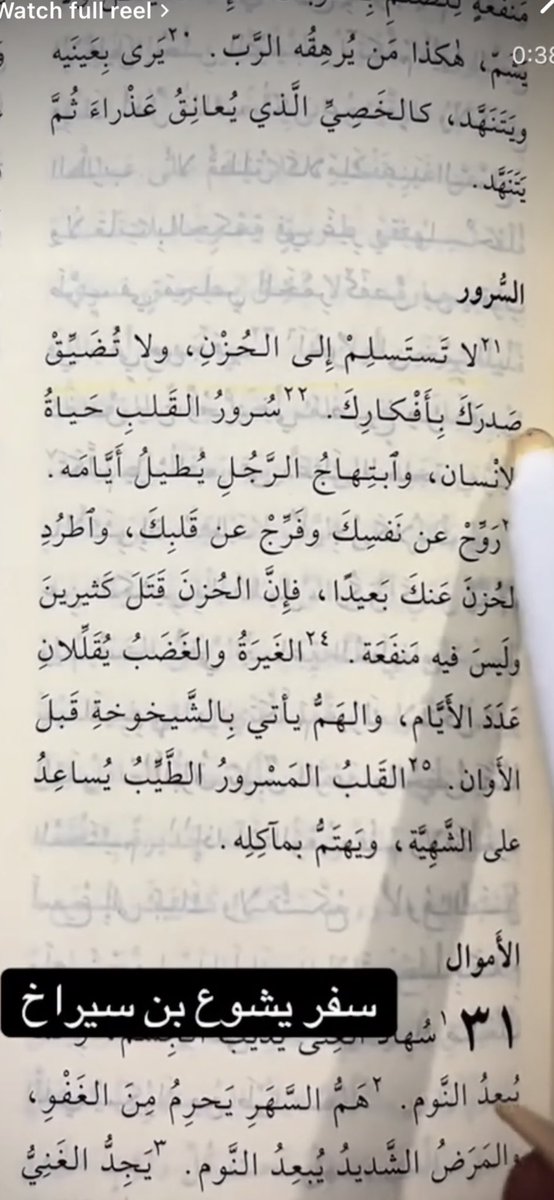 Watch full reel >
مَنفَعَةٍ
يَشُمّ، هٰكذا مَن يُرهِقُه الرَّبّ. ٢٠يَرى بِعَينَيه
0:38
ويَتَنَهَّد، كالخَصِيِّ الَّذي يُعانِقُ عَذْراءَ ثُمَّ
يَتَنَهَّد.
السُّرور
٢١لا تَستَسلِمْ إِلى الحُزْنِ، ولا تُضَيِّقْ
صَدرَكَ بِأَفْكارِكَ. ٢٢سُرورُ القَلبِ حَياةُ
لإِنْسان، وٱبتِهاجُ الرَّجُلِ يُطيلُ أَيَّامَه.
رَوِّحْ عن نَفسِكَ وفَرِّجْ عن قَلبِكَ، وٱطرُدِ
لحُزنَ عَنكَ بَعيدًا، فإِنَّ الحُزنَ قَتَلَ كَثيرينَ
ولَيسَ فيه مَنفَعَة. ٢٤الغَيرَةُ والغَضَبُ يُقَلِّلانِ
عَدَدَ الأَيَّام، والهَمُّ يأتي بِالشَّيخوخةِ قَبلَ
الأَوان. ٢٥القَلبُ المَسْرورُ الطَّيِّبُ يُساعِدُ
على الشَّهِيَّة، ويَهتَمُّ بمآكِلِه.
الأَموال
سفر يشوع بن سيراخ
٣١ ١سُهادُ الغِنى يُذيبُ
يُبعِدُ النَّوم. ٢هَمُّ السَّهَرِ يَحرِمُ مِنَ الغَفْوِ،
والمَرَضُ الشَّديدُ يُبعِدُ النَّوم. ٣يَجِدُّ الغَنِيُّ